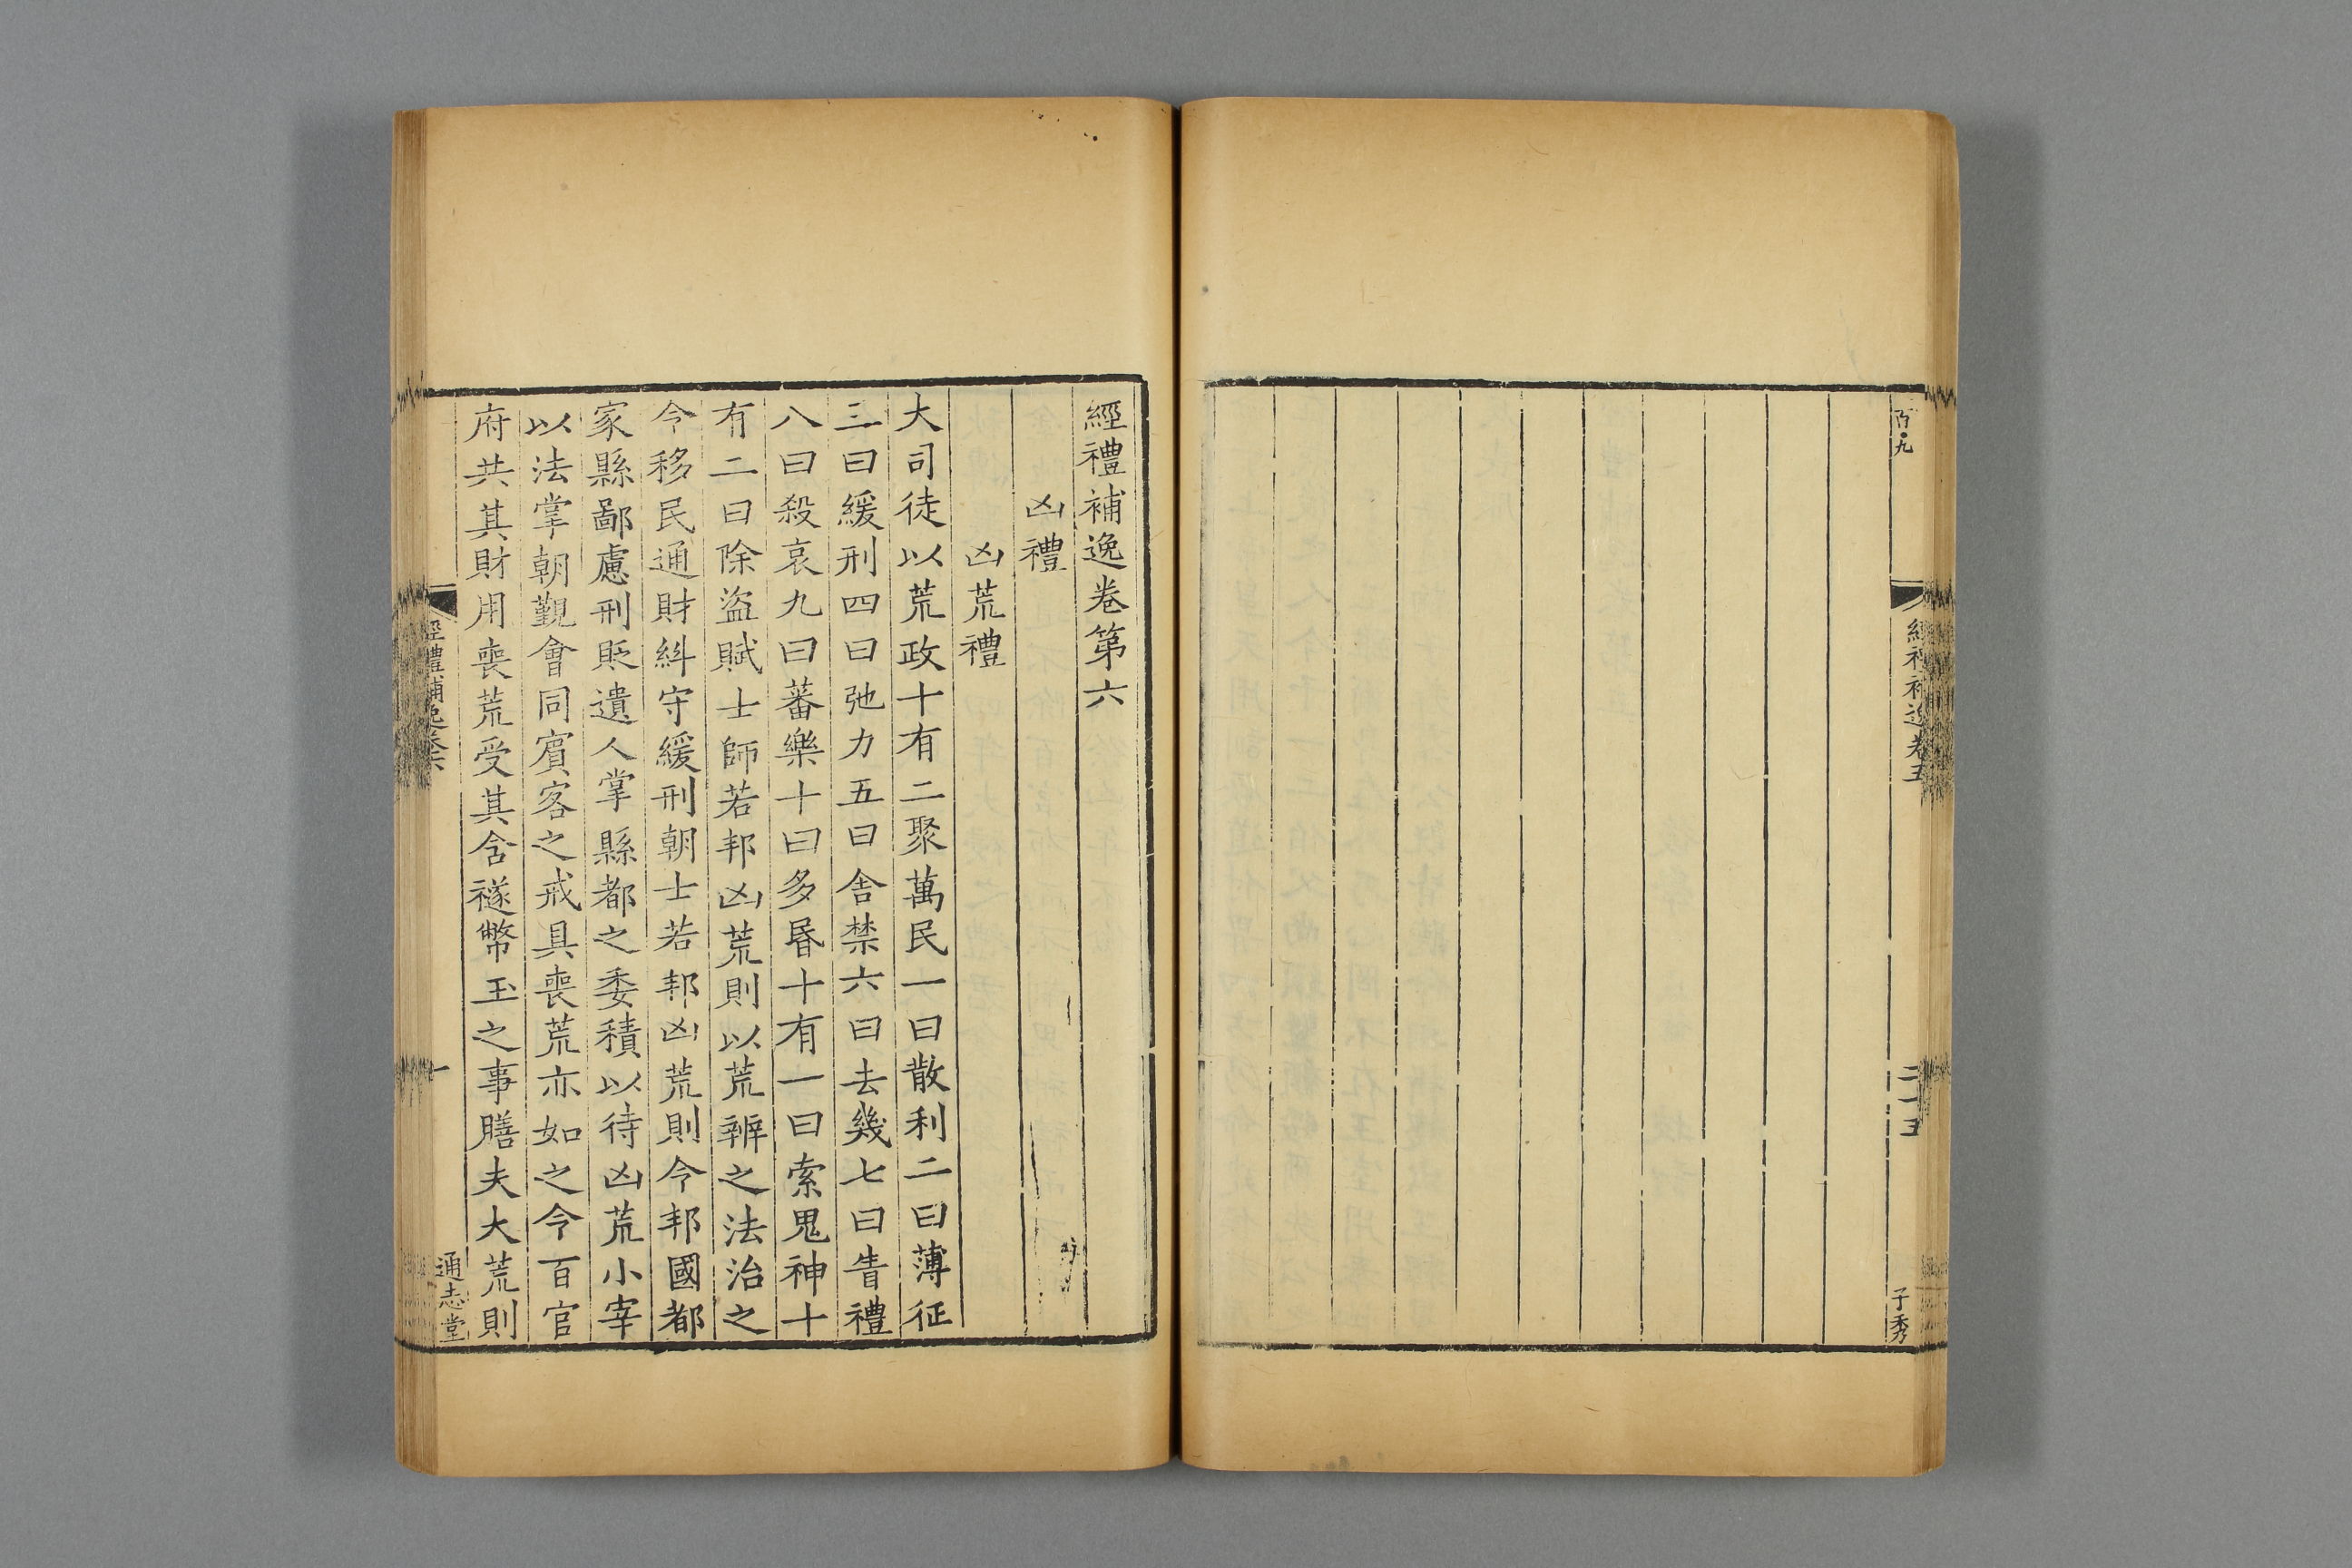 百九
經禮補逸卷五
二十五
子秀
經禮補逸卷第六
凶禮
凶荒禮
大司徒以荒政十有二聚萬民一曰散利二曰薄征
三曰緩刑四曰弛力五曰舍禁六曰去幾七曰眚禮
八曰殺哀九曰蕃樂十曰多昬十有一曰索鬼神十
有二曰除盜賊士師若邦凶荒則以荒辨之法治之
令移民通財糾守緩刑朝士若邦凶荒則令邦國都
家縣鄙慮刑貶遺人掌縣都之委積以待凶荒小宰
以法掌朝覲會同賓客之戒具喪荒亦如之令百官
府共其財用喪荒受其含襚幣玉之事膳夫大荒則
經禮補逸卷六
一
通志堂